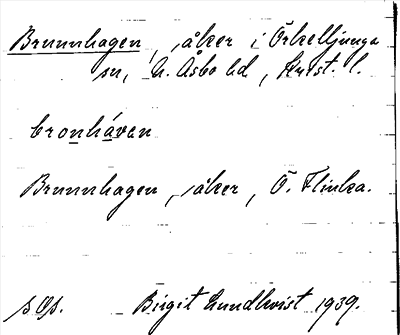 Brunnhagen, åker i Örkelljunga
sn, N. Åsbo hd, Krist. l.
bronháven
Brunnhagen, åker, Ö. Flinka.
s Os.
Birgit Lundkvist 1939.